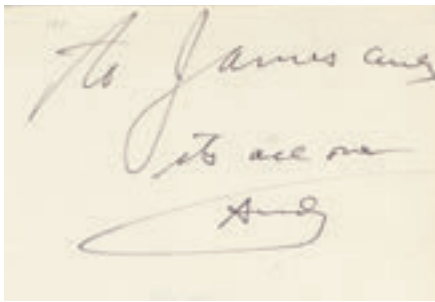 To James and
its all over
Andy